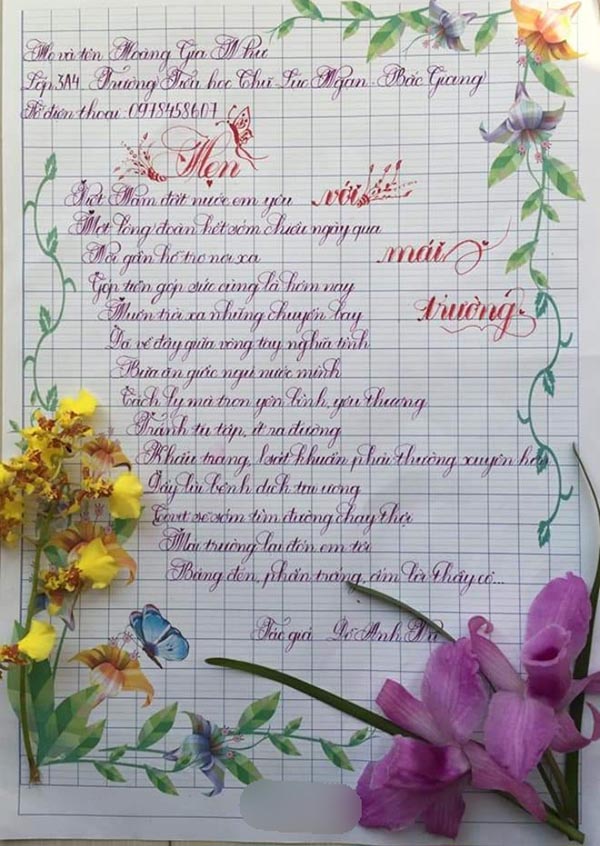 Họ và tên Hoàng Gia Như
Lớp 3A4 Trường Tiểu học Chũ - Lục Ngạn - Bắc Giang
Số điện thoại: 0978458607
Hẹn
với
mái
trường
Việt Nam đất nước em yêu
Một lòng đoàn kết sớm chiều ngày qua
Nơi gần hỗ trợ nơi xa
Góp tiền góp sức cùng là hôm nay
Muôn trái xa những chuyến bay
Đã về đây giữa vòng tay nghĩa tình
Bữa ăn giấc ngủ nước mình
Cách ly mà trọn yên bình, yêu thương
Tránh tụ tập, ở ra đường
Khẩu trang, sát khuẩn phải thường xuyên hơn
Đẩy lùi bệnh dịch tai ương
Covid sẽ sớm tìm đường chạy thôi
Mái trường lại đón em tới
Bảng đen, phấn trắng, ấm lời thầy cô...
Tác giả Đỗ Anh Vũ